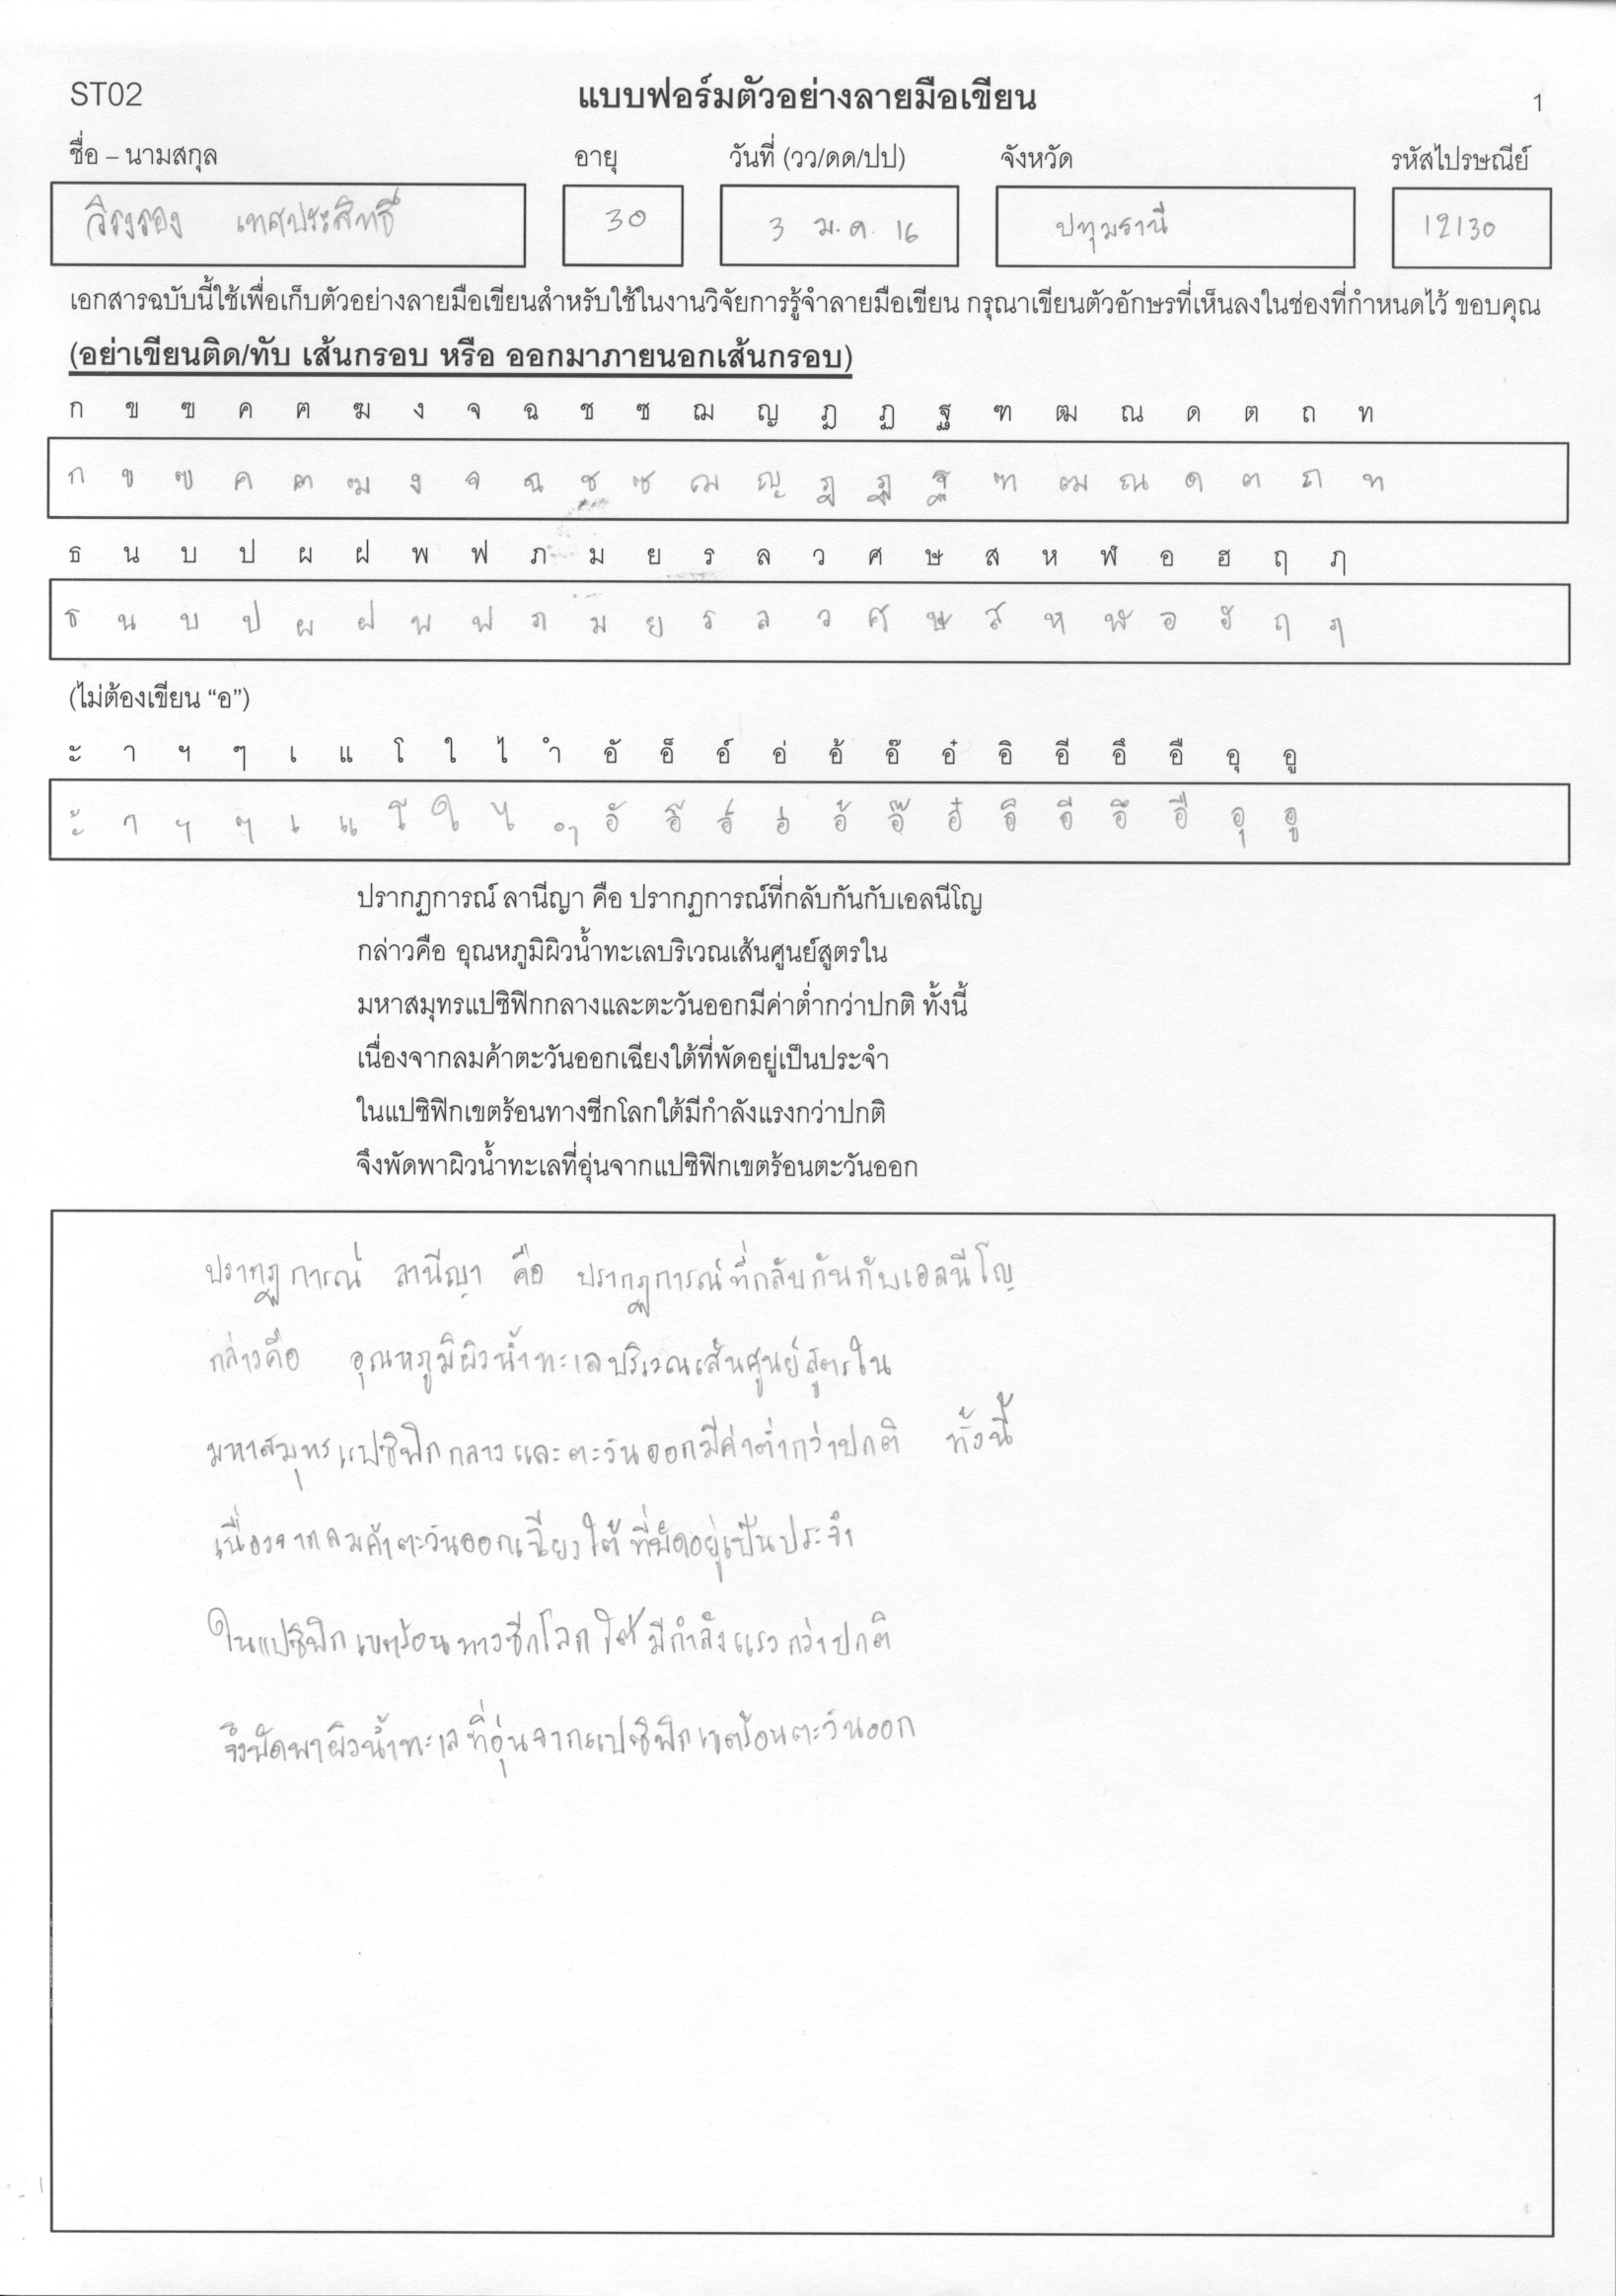 ST02 แบบฟอร์มตัวอย่างลายมือเขียน 1
ชื่อ – นามสกุล อายุ วันที่ (วว/ดด/ปป) จังหวัด รหัสไปรษณีย์
วิรงรอง เทศประสิทธิ์ 30 3 ม.ค. 16 ปทุมธานี 12130
เอกสารฉบับนี้ใช้เพื่อเก็บตัวอย่างลายมือเขียนสำหรับใช้ในงานวิจัยการรู้จำลายมือเขียน กรุณาเขียนตัวอักษรที่เห็นลงในช่องที่กำหนดไว้ ขอบคุณ
(อย่าเขียนติด/ทับ เส้นกรอบ หรือ ออกมาภายนอกเส้นกรอบ)
ก ข ฃ ค ฅ ฆ ง จ ฉ ช ซ ฌ ญ ฎ ฏ ฐ ฑ ฒ ณ ด ต ถ ท
ก ข ฃ ค ฅ ฆ ง จ ฉ ช ซ ฌ ญ ฎ ฏ ฐ ฑ ฒ ณ ด ต ถ ท
ธ น บ ป ผ ฝ พ ฟ ภ ม ย ร ล ว ศ ษ ส ห ฬ อ ฮ ฤ ฦ
ธ น บ ป ผ ฝ พ ฟ ภ ม ย ร ล ว ศ ษ ส ห ฬ อ ฮ ฤ ฦ
(ไม่ต้องเขียน “อ”)
ะ า ฯ ๆ เ แ โ ใ ไ ำ อั อ็ อ์ อ่ อ้ อ๊ อ๋ อิ อี อึ อื อุ อู
ะ า ฯ ๆ เ แ โ ใ ไ ำ อั อ็ อ์ อ่ อ้ อ๊ อ๋ อิ อี อึ อื อุ อู
ปรากฏการณ์ ลานีญา คือ ปรากฏการณ์ที่กลับกันกับเอลนีโญ
กล่าวคือ อุณหภูมิผิวน้ำทะเลบริเวณเส้นศูนย์สูตรใน
มหาสมุทรแปซิฟิกกลางและตะวันออกมีค่าต่ำกว่าปกติ ทั้งนี้
เนื่องจากลมค้าตะวันออกเฉียงใต้ที่พัดอยู่เป็นประจำ
ในแปซิฟิกเขตร้อนทางซีกโลกใต้มีกำลังแรงกว่าปกติ
จึงพัดพาผิวน้ำทะเลที่อุ่นจากแปซิฟิกเขตร้อนตะวันออก
ปรากฏการณ์ ลานีญา คือ ปรากฏการณ์ที่กลับกันกับเอลนีโญ
กล่าวคือ อุณหภูมิผิวน้ำทะเลบริเวณเส้นศูนย์สูตรใน
มหาสมุทรแปซิฟิกกลางและตะวันออกมีค่าต่ำกว่าปกติ ทั้งนี้
เนื่องจากลมค้าตะวันออกเฉียงใต้ที่พัดอยู่เป็นประจำ
ในแปซิฟิกเขตร้อนทางซีกโลกใต้มีกำลังแรงกว่าปกติ
จึงพัดพาผิวน้ำทะเลที่อุ่นจากแปซิฟิกเขตร้อนตะวันออก